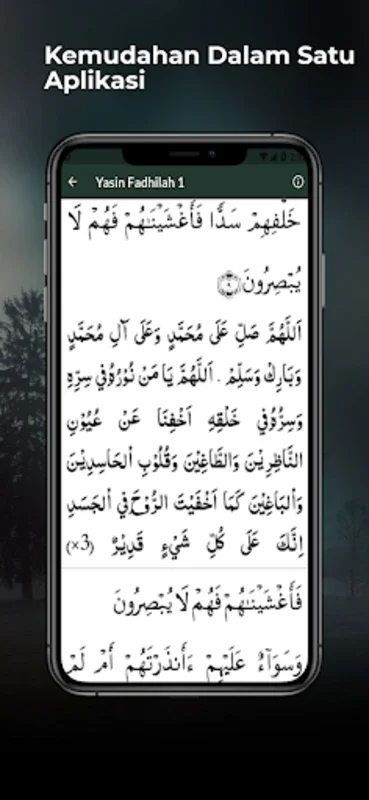 Kemudahan Dalam Satu
Aplikasi
Yasin Fadhilah 1
خَلْفِهِمْ سَدًّا فَأَغْشَيْنَٰهُمْ فَهُمْ لَا
يُبْصِرُونَ
اَللَّهُمَّ صَلِّ عَلَى مُحَمَّدٍ وَعَلَى آلِ مُحَمَّدٍ
وَبَارِكْ وَسَلِّمْ . اَللَّهُمَّ يَا مَنْ نُوْرُهُ فِي سِرِّهِ
وَسِرُّهُ فِي خَلْقِهِ اَخْفِنَا عَنْ عُيُوْنِ
النَّاظِرِيْنَ وَالطَّاغِيْنَ وَقُلُوْبِ الْحَاسِدِيْنَ
وَالْبَاغِيْنَ كَمَا اَخْفَيْتَ الرُّوْحَ فِي الْجَسَدِ
اِنَّكَ عَلَى كُلِّ شَيْءٍ قَدِيْرٌ (3×)
فَأَغْشَيْنَٰهُمْ فَهُمْ لَا يُبْصِرُونَ
وَسَوَآءٌ عَلَيْهِمْ ءَأَنذَرْتَهُمْ أَمْ لَمْ